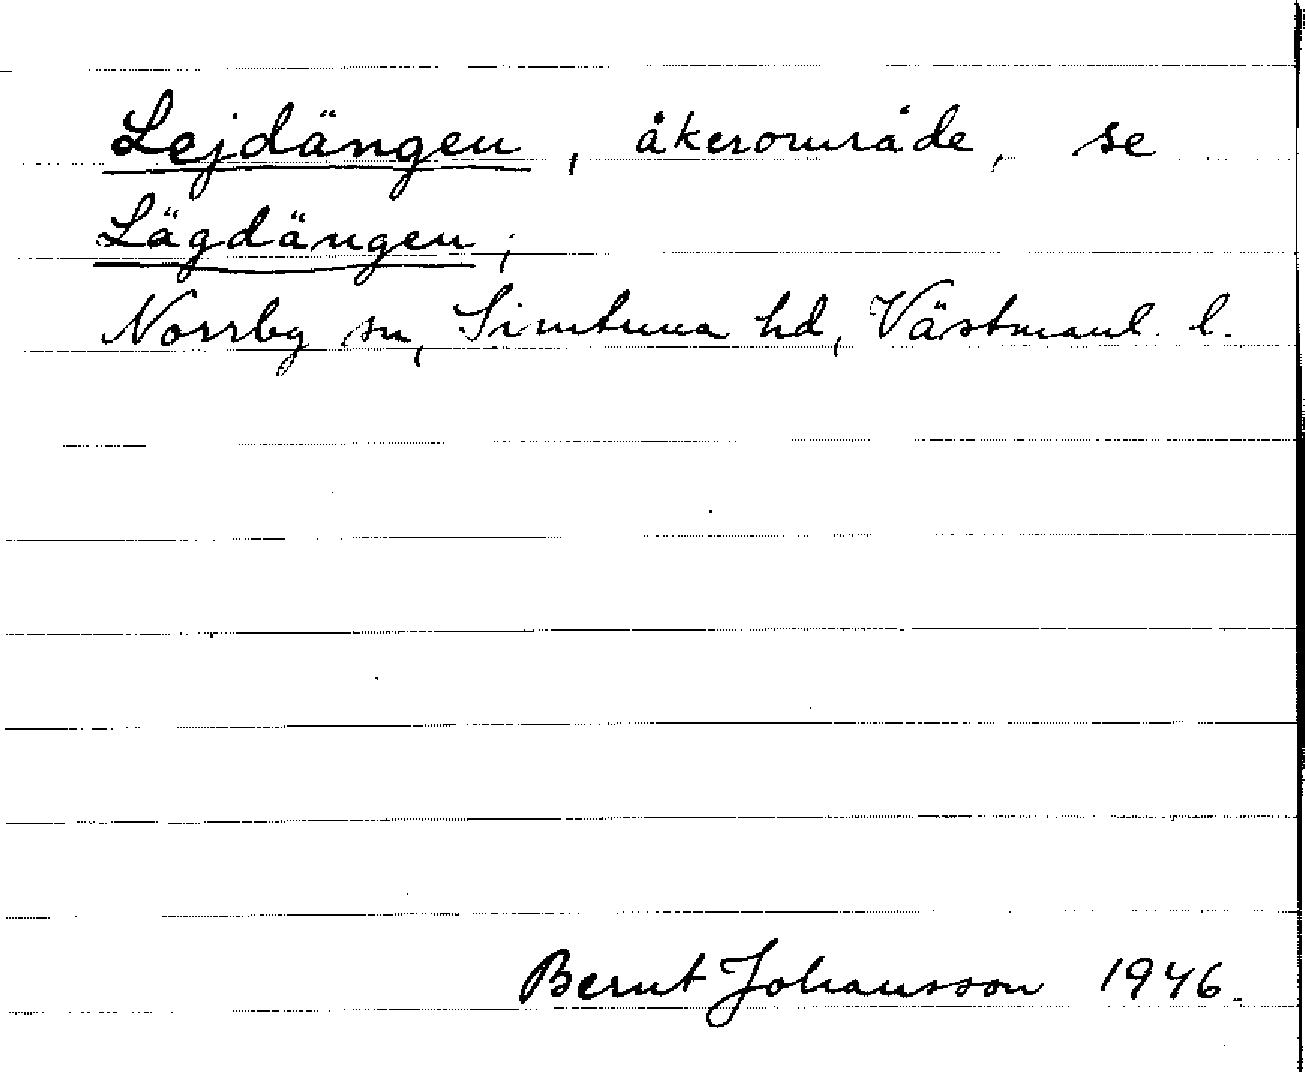 Lejdängen, åkerområde, se
Lägdängen;
Norrby sn, Simtuna hd, Västmanl. l.
Bernt Johansson 1946.